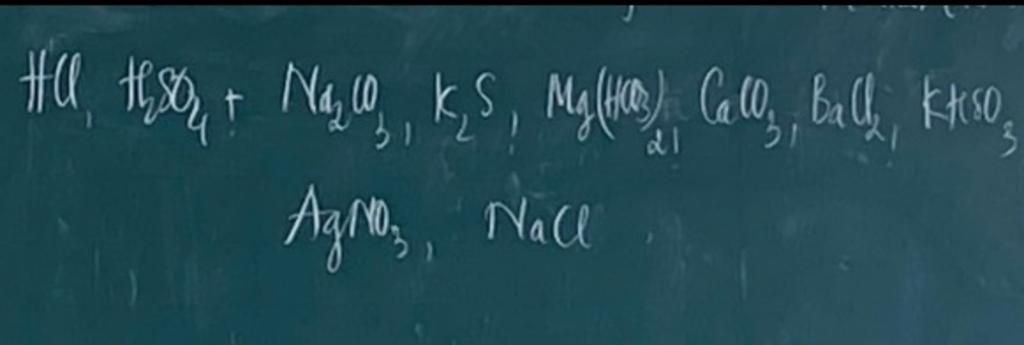 HCl, H₂SO₄ + Na₂CO₃, K₂S, Mg(HCO₃)₂, CaCO₃, BaCl₂, KHSO₃
AgNO₃, NaCl